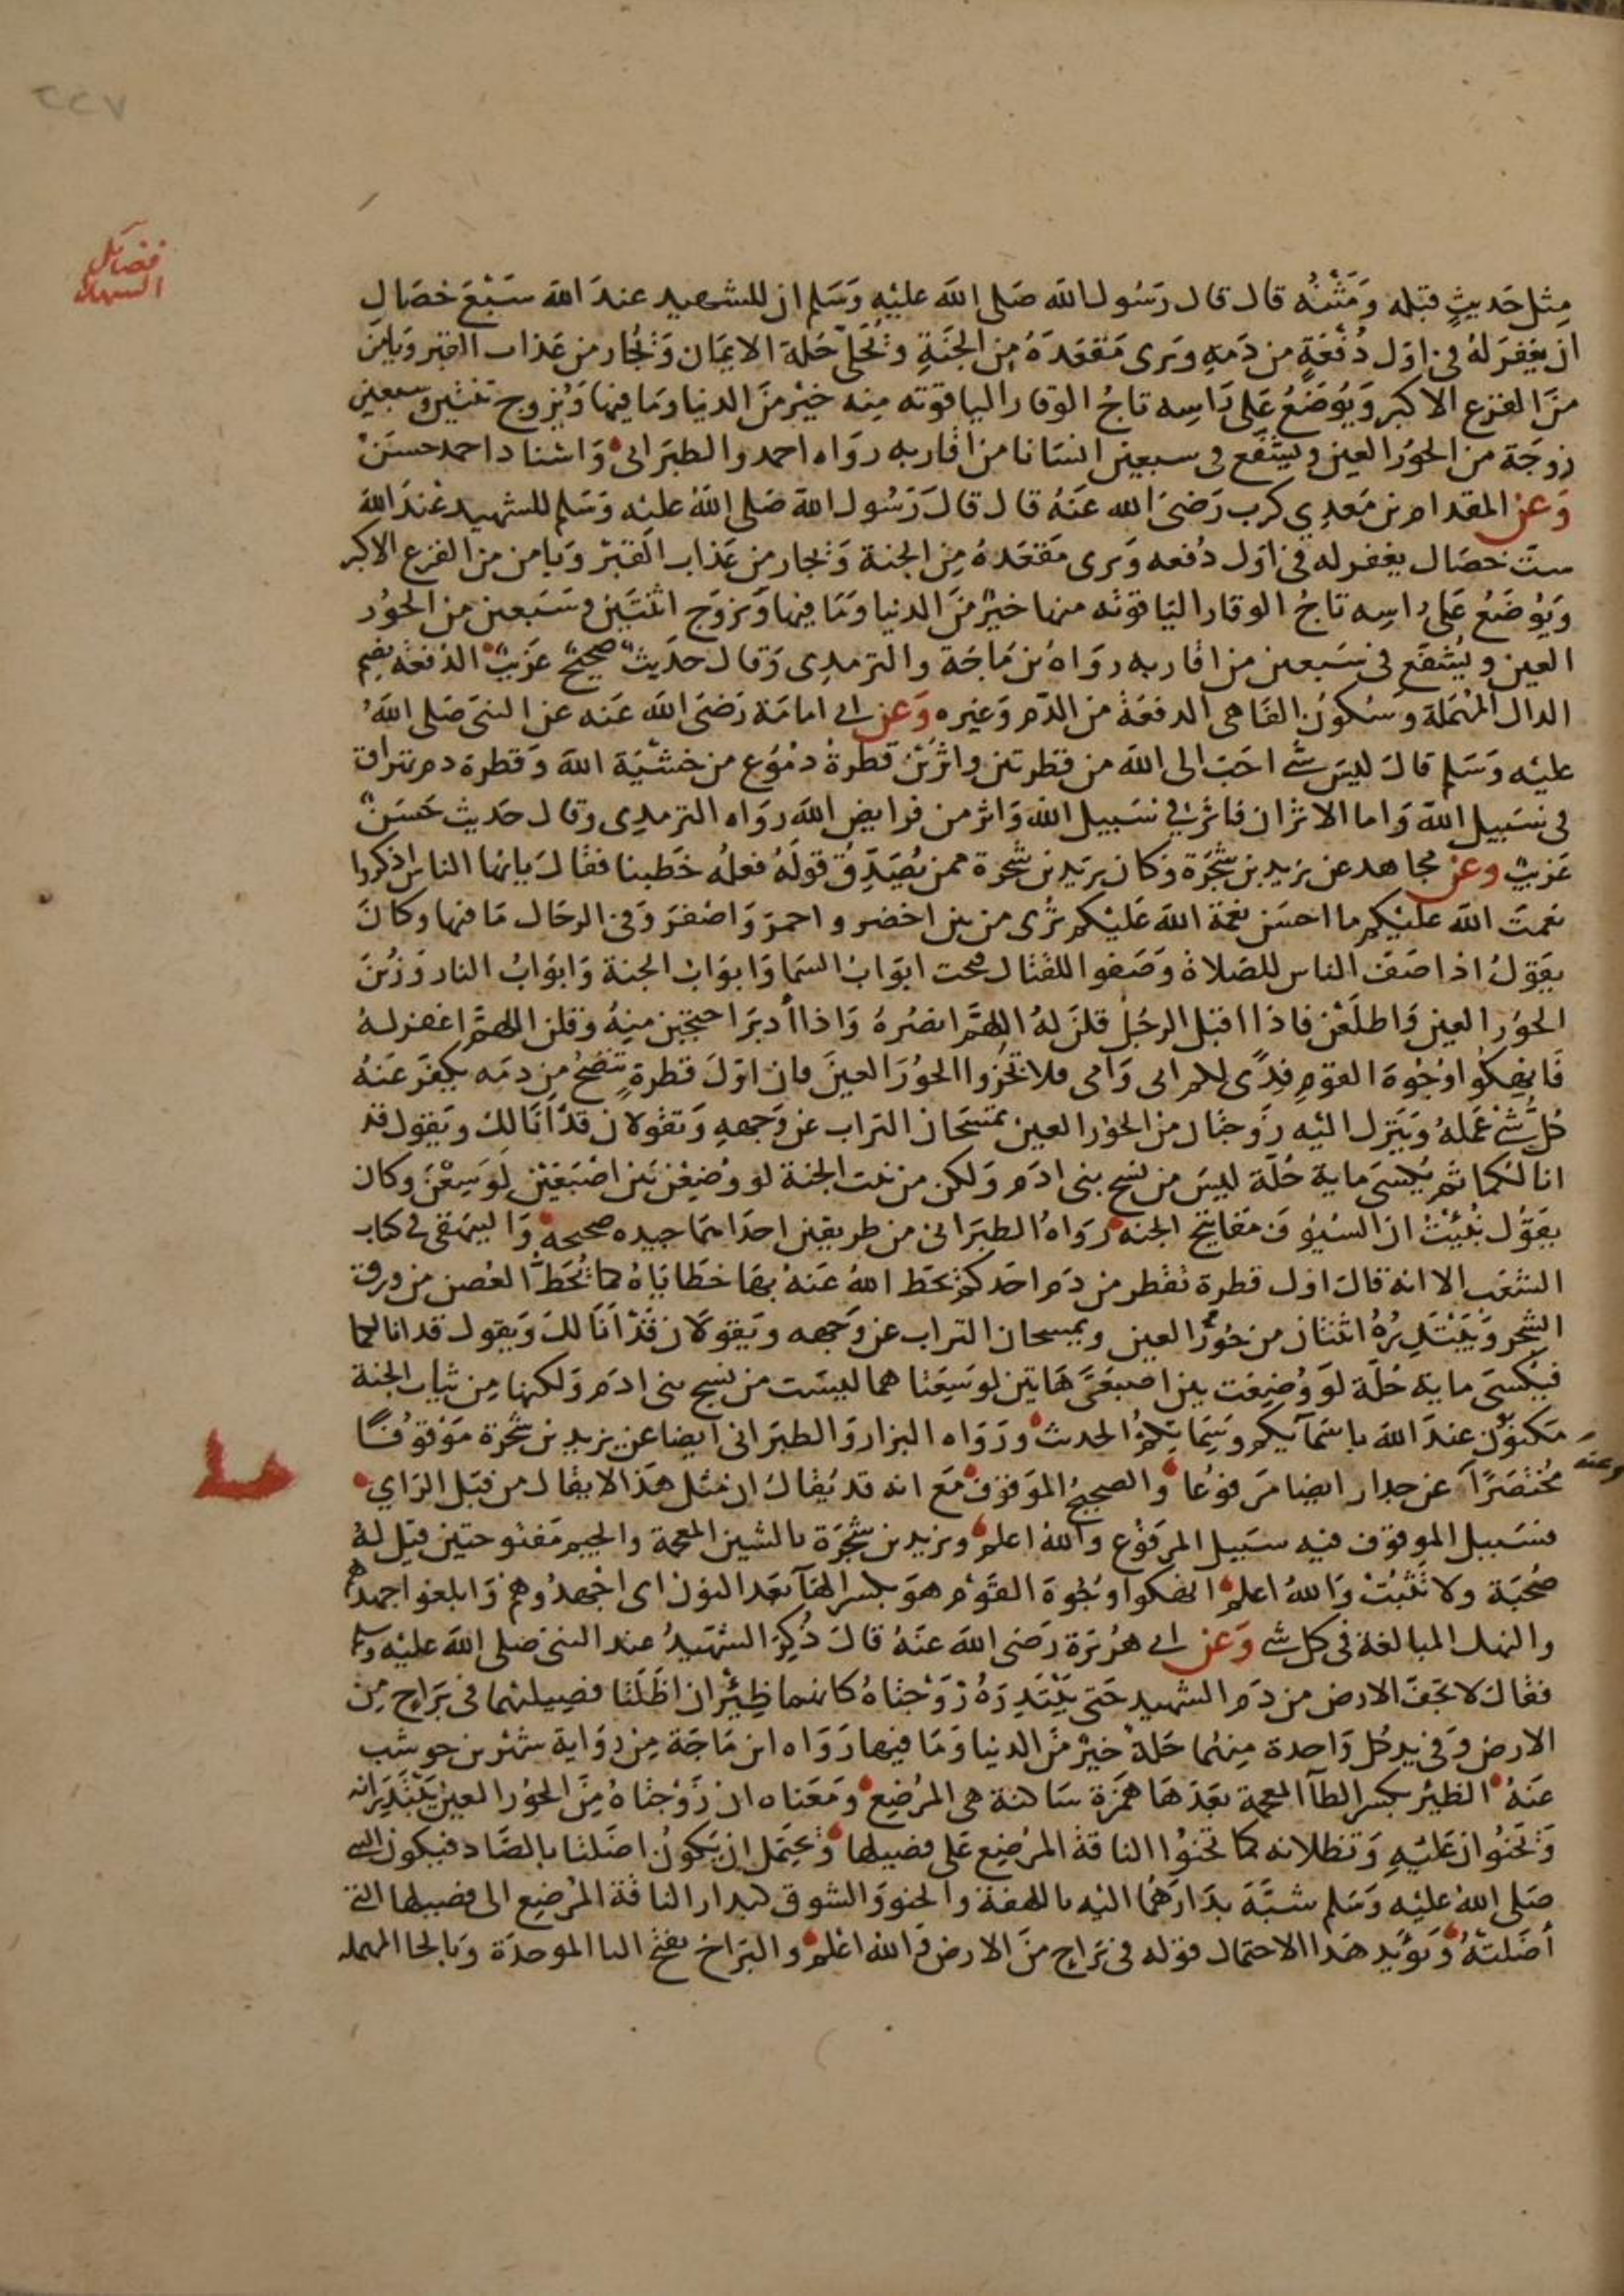 ٢٢٧
فضايل
الشهدا
مثل حديث قبله ومتنه قال قال رسول الله صلى الله عليه وسلم ان للشهيد عند الله سبع خصال
ان يغفر له في اول دفعة من دمه ويرى مقعده من الجنة ويحلى حلة الايمان ويجار من عذاب القبر ويامن
من الفزع الاكبر ويوضع على راسه تاج الوقار الياقوته منه خير من الدنيا وما فيها ويزوج ثنتين وسبعين
زوجة من الحور العين ويشفع في سبعين انسانا من اقاربه رواه احمد والطبراني واسناد احمد حسن
وعن المقدام بن معدي كرب رضي الله عنه قال قال رسول الله صلى الله عليه وسلم للشهيد عند الله
ست خصال يغفر له في اول دفعه ويرى مقعده من الجنة ويجار من عذاب القبر ويامن من الفزع الاكبر
ويوضع على راسه تاج الوقار الياقوته منها خير من الدنيا وما فيها ويزوج اثنتين وسبعين من الحور
العين ويشفع في سبعين من اقاربه رواه بن ماجة والترمدى وقال حديث صحيح غريب الدفعه بضم
الدال المهملة وسكون الفا هي الدفعة من الدم وغيره وعن ابي امامة رضي الله عنه عن النبي صلى الله
عليه وسلم قال ليس شي احب الى الله من قطرتين واثرين قطرة دموع من خشية الله وقطرة دم تهراق
في سبيل الله واما الاثران فاثر في سبيل الله واثر من فرايض الله رواه الترمدى وقال حديث حسن
غريب وعن مجاهد عن يزيد بن شجرة وكان يزيد بن شجرة ممن يصدق قوله فعله خطبنا فقال يايها الناس اذكروا
نعمت الله عليكم ما احسن نعمة الله عليكم ترى من بين اخضر واحمر واصفر وفي الرحال ما فيها وكان
يقول اذا صف الناس للصلاة وصفوا للقتال فتحت ابواب السما وابواب الجنة وابواب النار وزين
الحور العين واطلعن فاذا اقبل الرجل قلن له اللهم انصره واذا ادبر احتجبن منه وقلن اللهم اغفر له
فانهكوا وجوه القوم فدى لكم ابى وامى فلا تخزوا الحور العين فان اول قطرة تنضح من دمه يكفر عنه
كل شي عمله وينزل اليه زوجتان من الحور العين تمسحان التراب عن وجهه وتقولان قد انا لك ويقول قد
انا لكما ثم يكسى ماية حلة ليس من نسج بنى ادم ولكن من نبت الجنة لو وضعن بين اصبعين لوسعن وكان
يقول نبئت ان السيوف مفاتيح الجنة رواه الطبراني من طريقين احداهما جيده صحيحة والبيهقي في كتاب
البعث الا انه قال اول قطرة تقطر من دم احدكم يحط الله عنه بها خطاياه كما تحط الغصن من ورق
الشجر ويبتدره اثنتان من حور العين ويمسحان التراب عن وجهه ويقولان قد انا لك ويقول قد انا لكما
فيكسى ماية حلة لو وضعت بين اصبعى هاتين لوسعتا هما ليست من نسج بنى ادم ولكنها من ثياب الجنة
مكتوبون عند الله باسمآيكم وسيماتكم الحديث ورواه البزار والطبراني ايضا عن يزيد بن شجرة موقوفا
وعنه
مختصرا عن جدار ايضا مرفوعا والصحيح الموقوف مع انه قد يقال ان مثل هذا لا يقال من قبل الراي
فسبيل الموقوف فيه سبيل المرفوع والله اعلم ويزيد بن شجرة بالشين المعجمة والجيم مفتوحتين قيل له
صحبة ولا تثبت والله اعلم انهكوا وجوه القوم هو بكسر الهآ بعد النون اى اجهدوهم وابلغوا جهدهم
والنهك المبالغة في كل شي وعن ابي هريرة رضي الله عنه قال ذكر الشهيد عند النبي صلى الله عليه وسلم
فقال لا تجف الارض من دم الشهيد حتى يبتدره زوجتاه كانهما ظئران اظلتا فصيلهما في براح من
الارض وفي يد كل واحدة منهما حلة خير من الدنيا وما فيها رواه ابن ماجة من رواية شهر بن حوشب
عنه الظئر بكسر الظآ المعجمة بعدها همزة ساكنة هي المرضع ومعناه ان زوجتاه من الحور العين يبتدرانه
وتحنوان عليه وتظلانه كما تحنوا الناقة المرضع على فصيلها ويحتمل ان يكون اضلتا بالضاد فيكون النبي
صلى الله عليه وسلم شبه بدارهما اليه باللهفة والحنو والشوق كبدار الناقة المرضع الى فصيلها التي
اضلته ويؤيد هذا الاحتمال قوله في براح من الارض والله اعلم والبراح بفتح البا الموحدة وبالحا المهمله